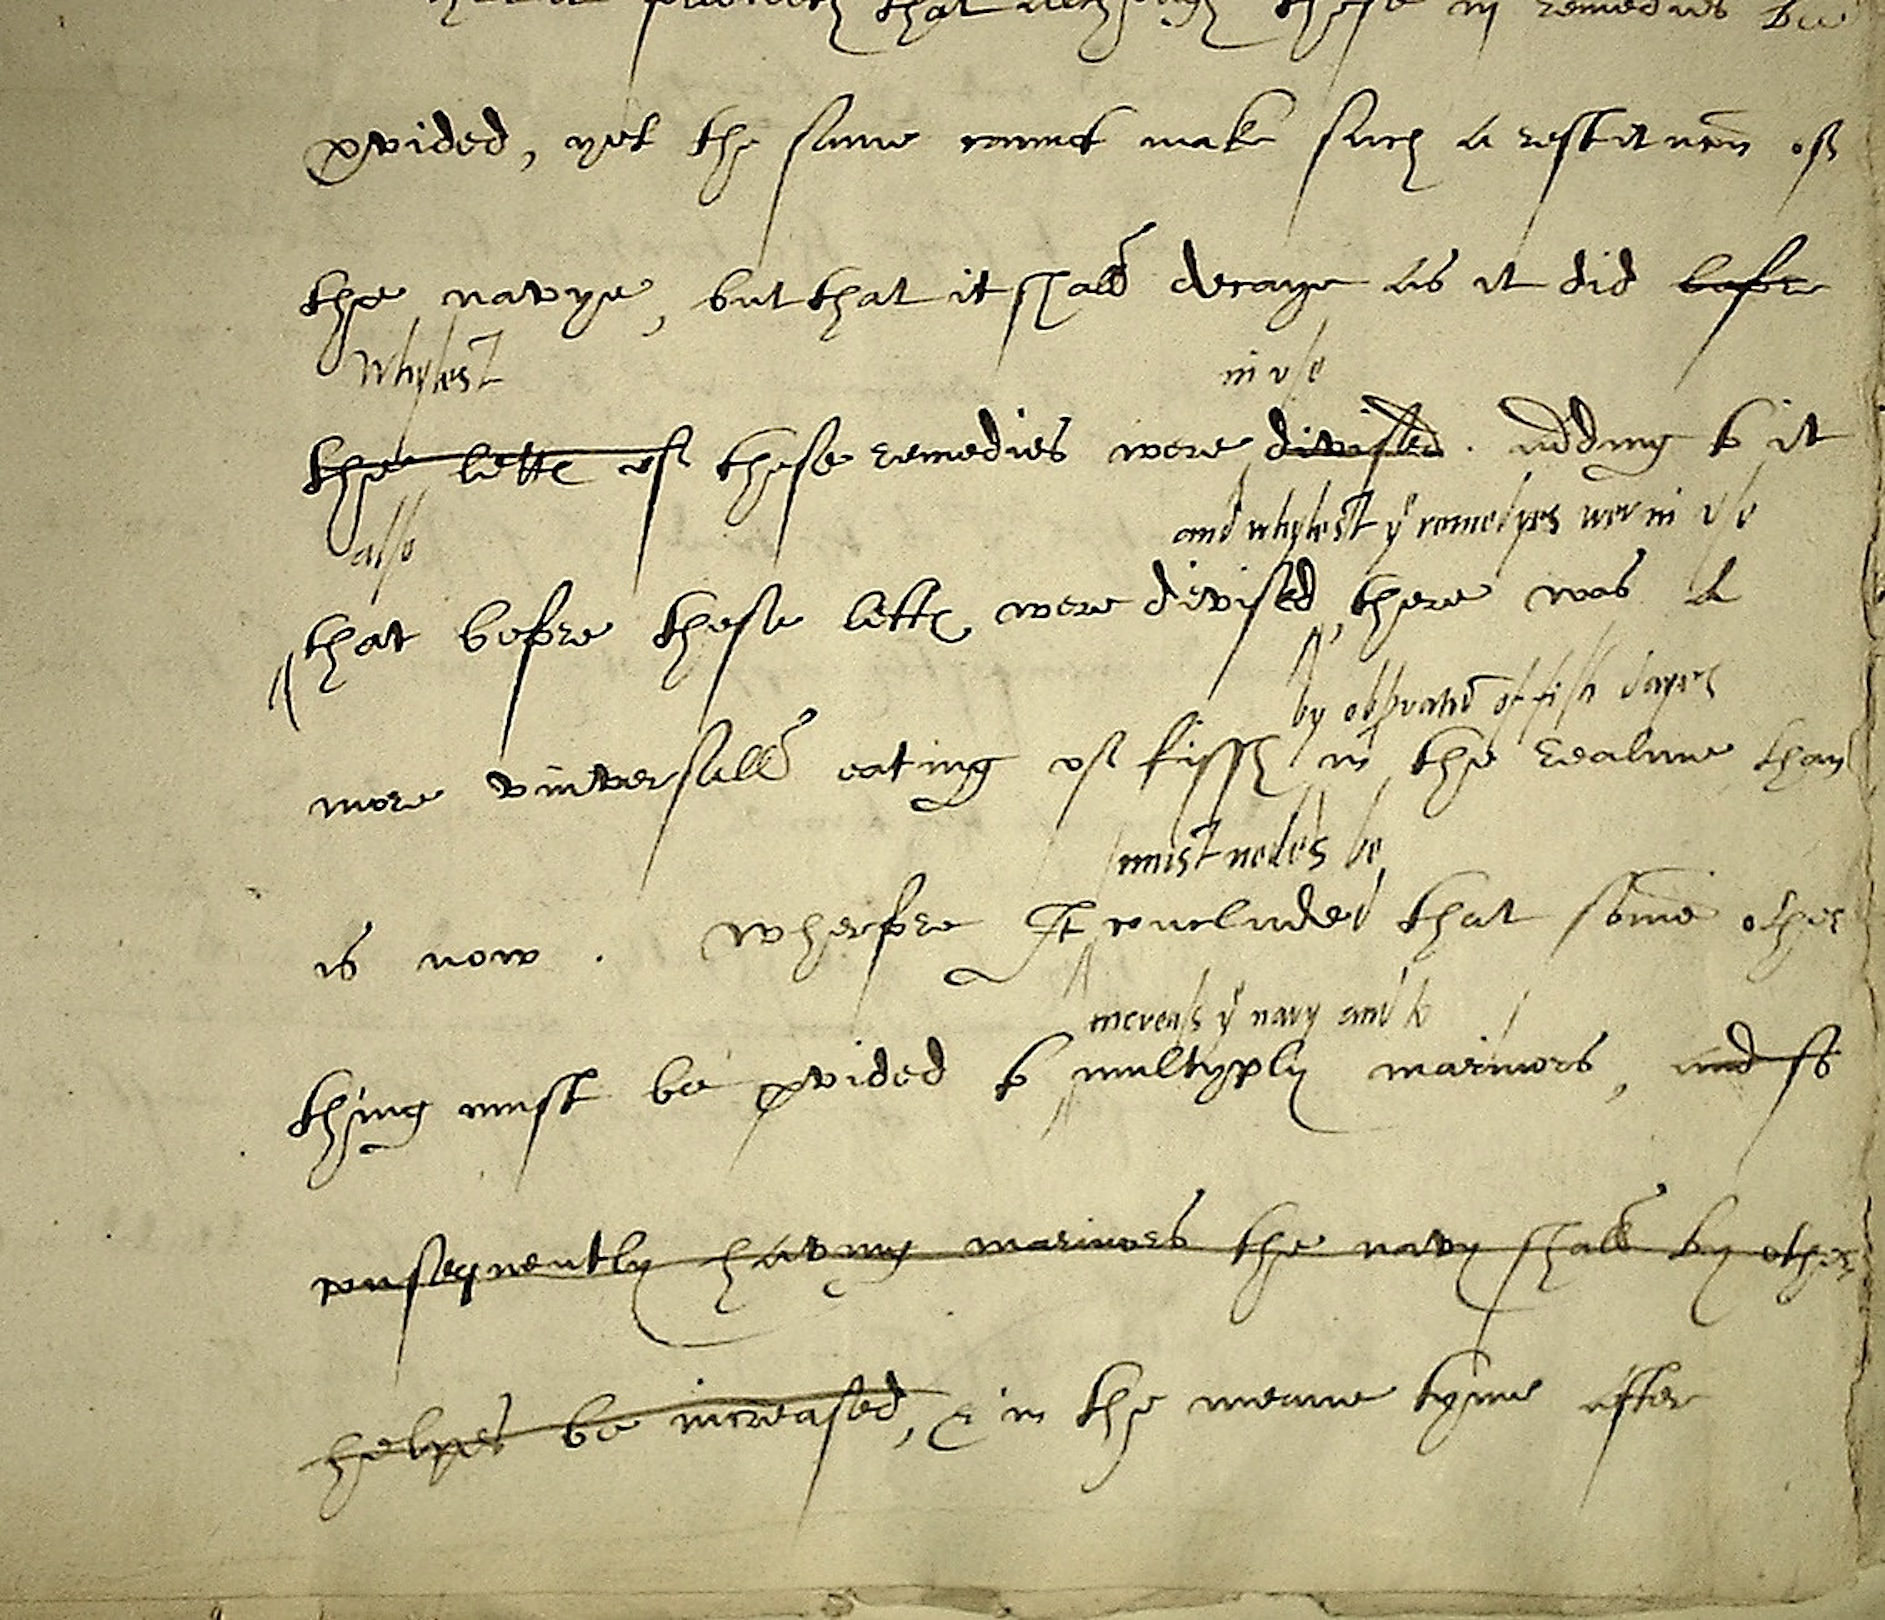 that although these iij remedies be
pvided, yet the same cannot make such a restitucōn of
the navye, but that it shall decaye as it did before
whylest in vse
the letts of these remedies were divised. adding to it
also and whylest yͤ remedyes wer in vse
that before these letts were divised, there was a
by observatiō of fish dayes
more vniversall eating of fissh in the realme than
must nedes be
is now. wherfore It concluded that some other
increass yͤ navy and to
thing must be pvided to multyply mariners, and so
consequently having mariners the navy shall by other
helpes be increased, & in the meane tyme after